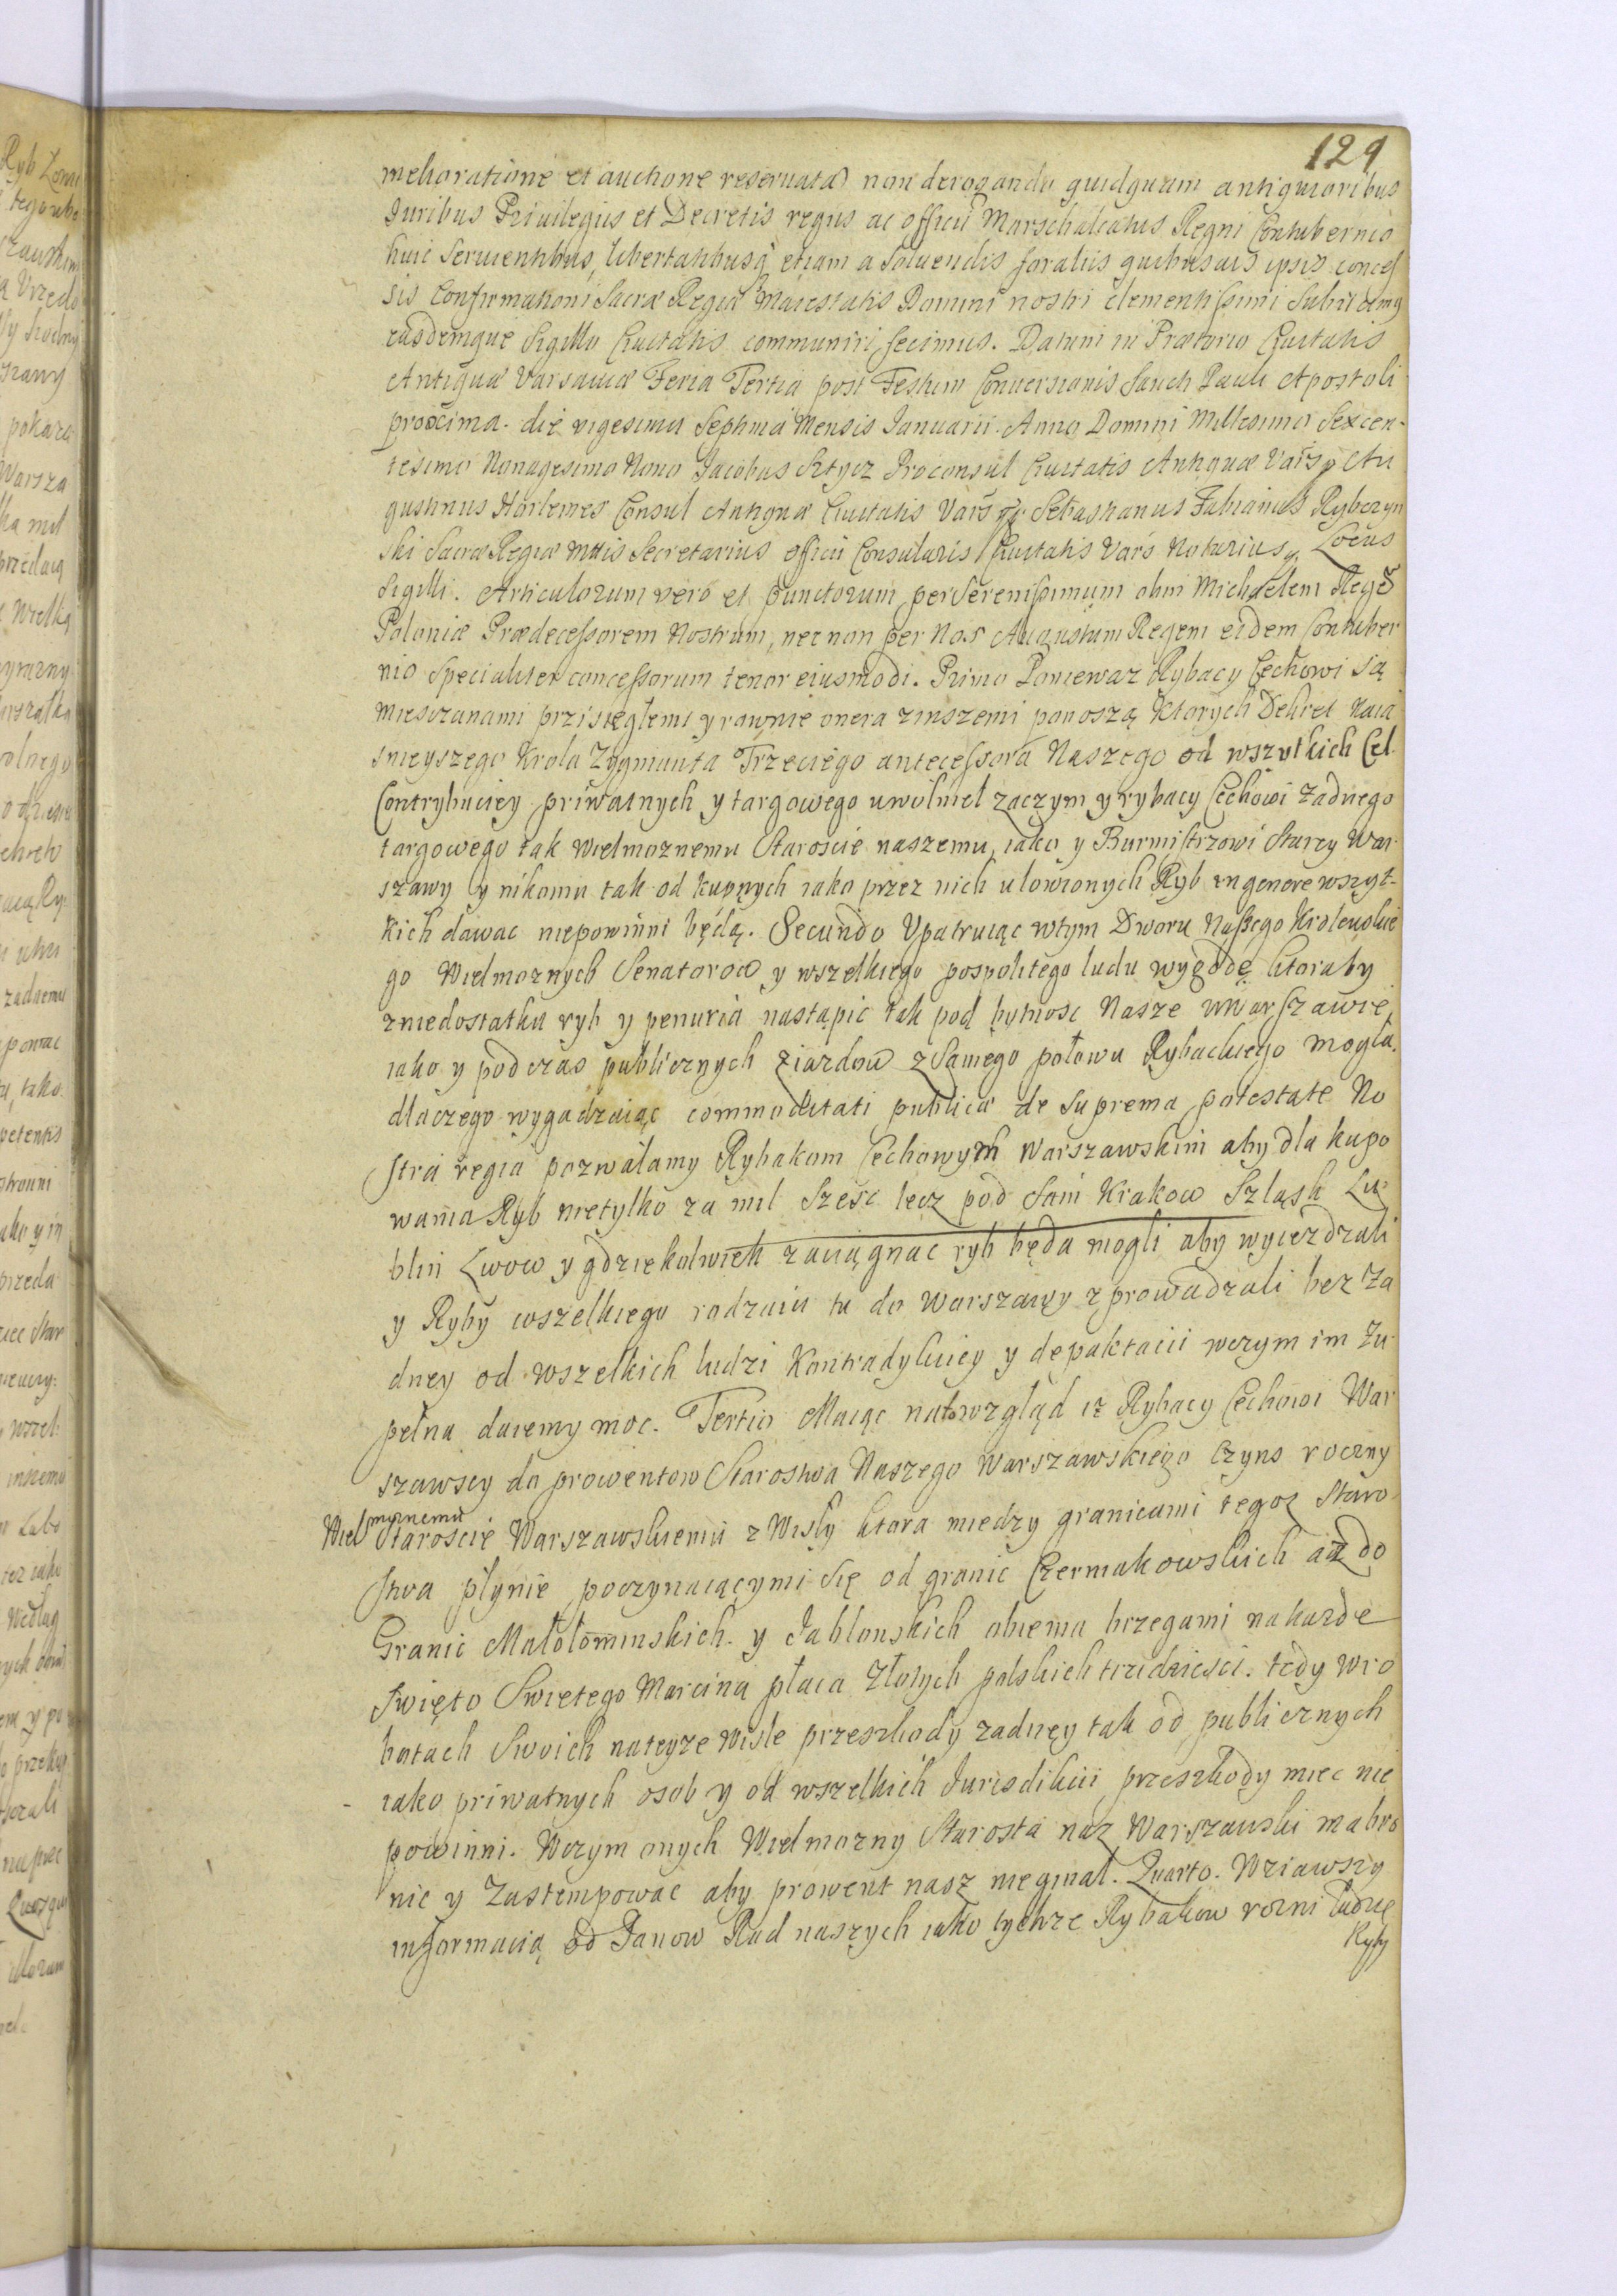 129
melioratione et auctione reservata) non derogando quidquam antiquioribus
Juribus Privilegiis et Decretis regiis ac officii Marschalcatus Regni Contubernio
huic Servientibus, libertatibusq etiam a Solvendis foraliis quibusuis ipsis conces
sis Confirmationi Sacræ Regiæ Maiestatis Domini nostri clementissimi Subiicimus
easdemque Sigillo Ciuitatis communiri fecimus. Datum in Prætorio Ciuitatis
Antiquæ Varsauiæ Feria Tertia post Festum Conuersionis Sancti Pauli Apostoli
proxima. die vigesima Septima Mensis Januarii. Anno Domini Millesimo Sexcen-
tesimo Nonagesimo Nono Jacobus Sztycz Proconsul Ciuitatis Antiquæ Vars Au
gustinus Horlemes Consul Antiquæ Ciuitatis Vars Sebastianus Fabianus Rybczyn
ski Sacræ Regiæ Mttis Secretarius officii Consularis Ciuitatis Vars Notarius, Locus
Sigilli. Articulorum vero et punctorum per Serenissimum olim Michaelem Regē
Poloniæ Prædecessorem Nostrum, nec non per Nos Augustum Regem eidem Contuber
nio Specialiter concessorum tenor eiusmodi. Primo Poniewaz Rybacy Cechowi są
miesczanami przisięgłemi y rownie onera zinszemi ponoszą Ktorych Dekret Naia
snieyszego Krola Zygmunta Trzeciego antecessora Naszego od wszytkich Cel
Contrybuciey priwatnych y targowego uwolniel zaczym y rybacy Cechowi zadnego
targowego tak Wielmoznemu Staroscie naszemu, iako y Burmistrzowi Starey War
szawy y nikomu tak od kupnych iako przez nich ulowionych Ryb in genere wszyt-
kich dawac niepowinni będą. Secundo Upatruiąc wtym Dworu Naszego Krolewskie
go Wielmoznych Senatorow y wszelkiego pospolitego ludu wygodę ktoraby
zniedostatku ryb y penuria nastąpic tak pod bytnosc Nasze w Warszawie,
iako y podczas publicznych ziazdow z Samego połowu Rybackiego mogła.
dlaczego wygadzaiąc commoditati publicæ de suprema potestate No
stra regia pozwalamy Rybakom Cechowym Warszawskim aby dla kupo
wania Ryb nietylko za mil Szesc lecz pod Sam Krakow Szląsk Lu
blin Lwow y gdziekolwiek zaciągnac ryb będa mogli aby wyiezdzali
y Ryby wszelkiego rodzaiu tu do Warszawy zprowadzali bez Za
dney od wszelkich ludzi Kontradykciey y depaktacii wczym im Zu-
pełna daiemy moc. Tertio Maiąc natowzgląd iz Rybacy Cechowi War
szawscy do prowentow Starostwa Naszego Warszawskiego Czyns roczny
Wielmoznemu Staroscie Warszawskiemu z Wisły ktora miedzy granicami tegoz Staro-
stwa płynie poczynaiącymi się od granic Czerniakowskich az do
Granic Małołominskich. y Jablonskich obiema brzegami nakazde
Swięto Swietego Marcina płaca Złotych polskich trzidziesci. tedy w ro
botach Swoich nateyze Wisle przeszkody zadney tak od publicznych
iako priwatnych osob y od wszelkich Jurisdikcii przeszkody miec nie
powinni. Wczym onych Wielmozny Starosta nasz Warszawski ma bro
nic y Zastempowac aby prowent nasz nieginał. Quarto. Wziawszy
informacią od Panow Rad naszych iako tychze Rybakow rozni ludzie
Ryby